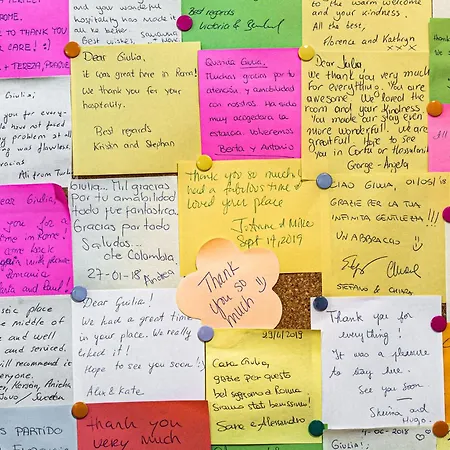 perfect!
ROME.
TO THANK YOU
CARE! :)
+ TEREZA,
and you wonderful
hospitality has made it
all be better.
Best wishes,
Best regards
Victoria &
to the warm welcome
and your kindness.
All the best,
Florence and Kathryn
xxx
Giulia,
you for every-
have not faced
problem at all
was flawless,
Ali from
Dear Giulia,
it was great here in Rom!
We thank you for your
hospitality.
Best regards
Kristin and Stephan
Querida Giulia,
Muchas gracias por tu
atención y amabilidad
con nosotros. Ha sido
muy acogedora la
estancia. Volveremos
Berta y Antonio
Dear Julia
We thank you very much
for everything. You are
awesome. We loved the
room and your kindness
You made our stay even
more wonderful. We are
greatfull. Hope to see
you in Corfu or
George - Angela
Dear Giulia,
you for a
time in Rome.
come back
again with
Romania
and Paul!
Giulia... Mil gracias
por tu amabilidad
todo fue fantastico.
Gracias por todo
Saludos...
dte Colombia.
27-01-18 Andrea
Thank you so much!
had a fabulous time &
loved your place
JoAnne & Mike
Sept 14, 2019
CIAO GIULIA, 01/05/18
GRAZIE PER LA TUA
INFINITA GENTILEZZA!!!
UN ABBRACCIO
STEFANO & CHIARA
Thank
you so
much
place
middle of
and well
and serviced.
will recommend it
everyone.
Sweden
Dear Giulia!
We had a great time
in your place. We really
liked it!
Hope to see you soon! :)
Alix & Kate
23/6/2019
Cara Giulia,
grazie per questo
bel soggiorno a Roma
Siamo stati benissimo!
Sara e Alessandro
Thank you for
everything!
It was a pleasure
to stay here.
See you soon.
Sheina and
Hugo.
PARTIDO
thank you
very much
-06-2018
Giulia!